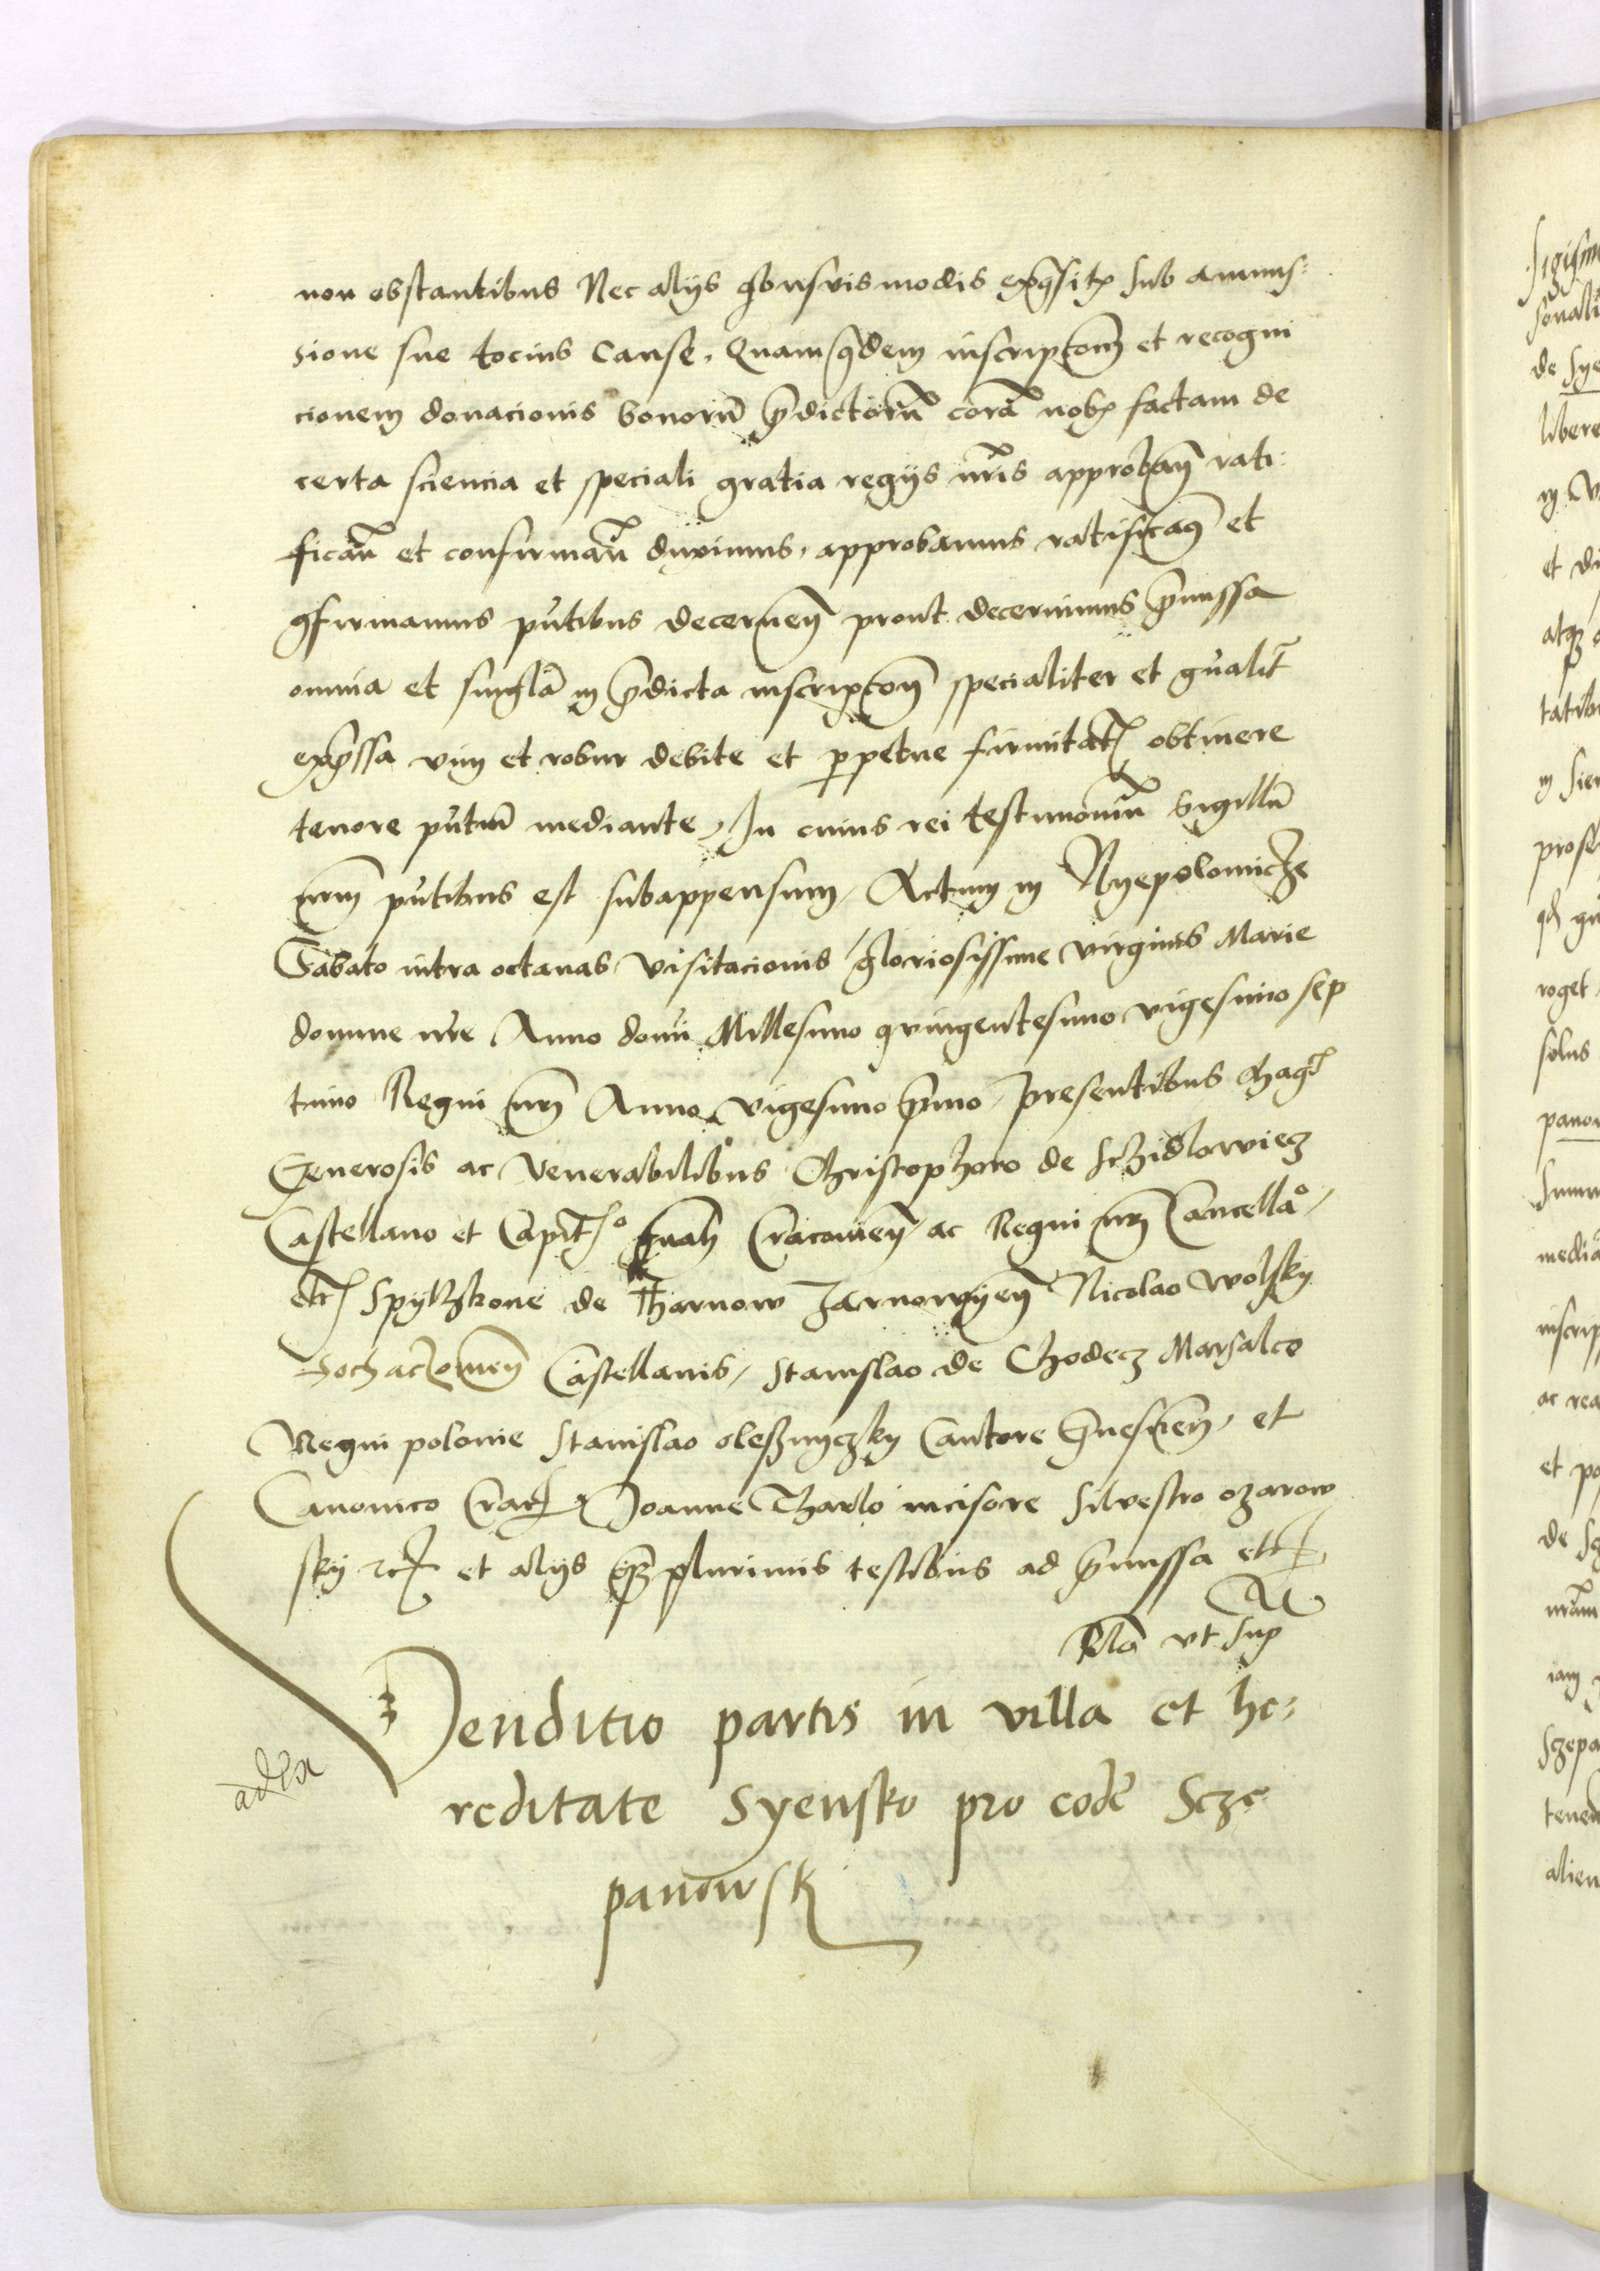 non obstantibus Nec alijs quibusvis modis exquisitis sub amis⸗
sione sue tocius Cause. Quamquidem inscriptionem et recogni
cionem donacionis bonorum predictorum coram nobis factam de
certa sciencia et speciali gratia regijs nostris approbandam rati⸗
ficandam et confirmandam duximus, approbamus ratificamus et
confirmamus presentibus decernentes prout decernimus premissa
omnia et singula in predicta inscriptione specialiter et generaliter
expressa vim et robur debite et perpetue firmitatis obtinere
tenore presentium mediante, In cuius rei testimonium Sigillum
nostrum presentibus est subappensum, Actum in Nyepolomicze
Sabato intra octavas Visitacionis gloriosissime virginis Marie
domine nostre Anno domini Millesimo quingentesimo vigesimo sep
timo Regni nostri Anno vigesimo primo, presentibus Magnificis
Generosis ac Venerabilibus Christophoro de Schidlowiecz
Castellano et Capitaneo generali Cracoviensi ac Regni nostri Cancellario,
etc Spythkone de Tharnow Zarnowyensi Nicolao Wolsky
Sochaczoviensi Castellanis, Stanislao de Chodecz Marsalco
Regni polonie Stanislao olessnyczky Cantore Gneznensi, et
Canonico Crac Joanne Tharlo incisore Silvestro ozarow
sky etc et alijs quam plurimis testibus ad premissa etc
Rela ut Sup
Venditio partis in villa et he⸗
reditate Syensko pro eodem Scze
panowski